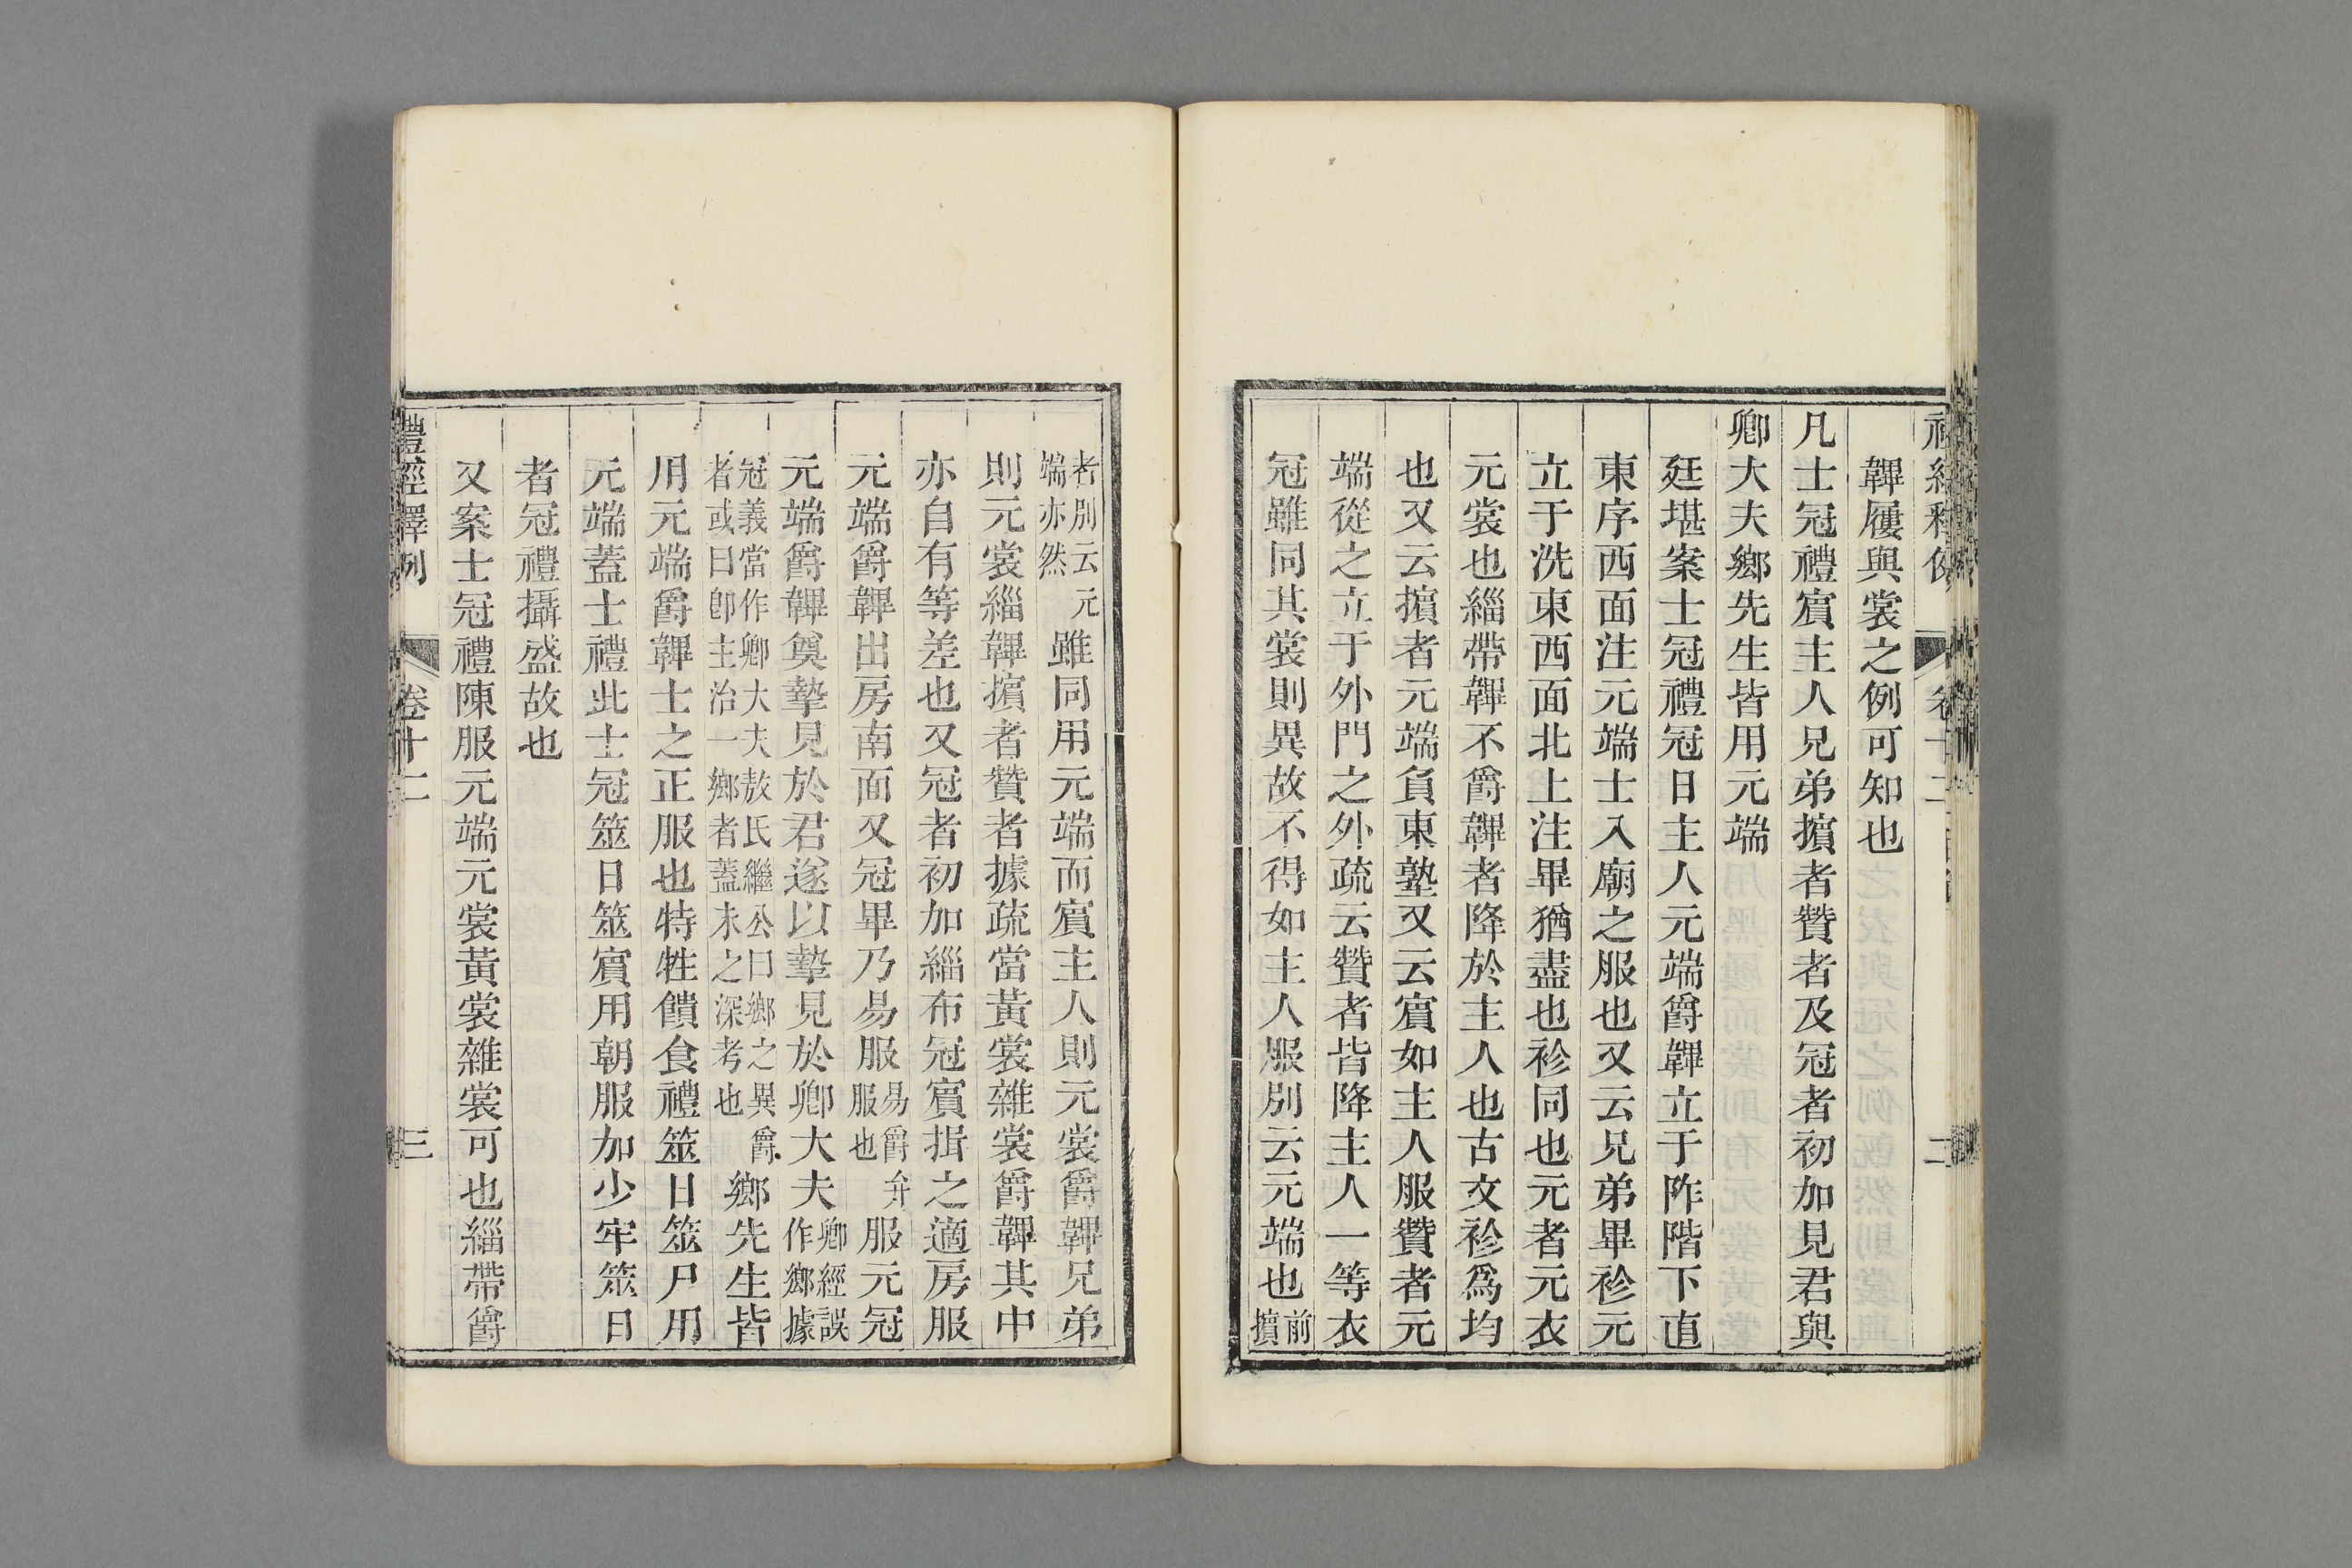 禮經釋例 卷十二 二
韠屨與裳之例可知也
凡士冠禮賓主人兄弟擯者贊者及冠者初加見君與
卿大夫鄉先生皆用元端
廷堪案士冠禮冠日主人元端爵韠立于阼階下直
東序西面注元端士入廟之服也又云兄弟畢袗元
立于洗東西面北上注畢猶盡也袗同也元者元衣
元裳也緇帶韠不爵韠者降於主人也古文袗爲均
也又云擯者元端負東塾又云賓如主人服贊者元
端從之立于外門之外疏云贊者皆降主人一等衣
冠雖同其裳則異故不得如主人服別云元端也前擯
者別云元端亦然雖同用元端而賓主人則元裳爵韠兄弟
則元裳緇韠擯者贊者據疏當黃裳雜裳爵韠其中
亦自有等差也又冠者初加緇布冠賓揖之適房服
元端爵韠出房南面又冠畢乃易服易爵弁服也服元冠
元端爵韠奠摯見於君遂以摯見於卿大夫卿經誤作鄉據
冠義當作卿大夫敖氏繼公曰鄉之異爵者或曰卽主治一鄉者蓋未之深考也鄉先生皆
用元端爵韠士之正服也特牲饋食禮筮日筮尸用
元端蓋士禮此士冠筮日筮賓用朝服加少牢筮日
者冠禮攝盛故也
又案士冠禮陳服元端元裳黃裳雜裳可也緇帶爵
禮經釋例 卷十二 三